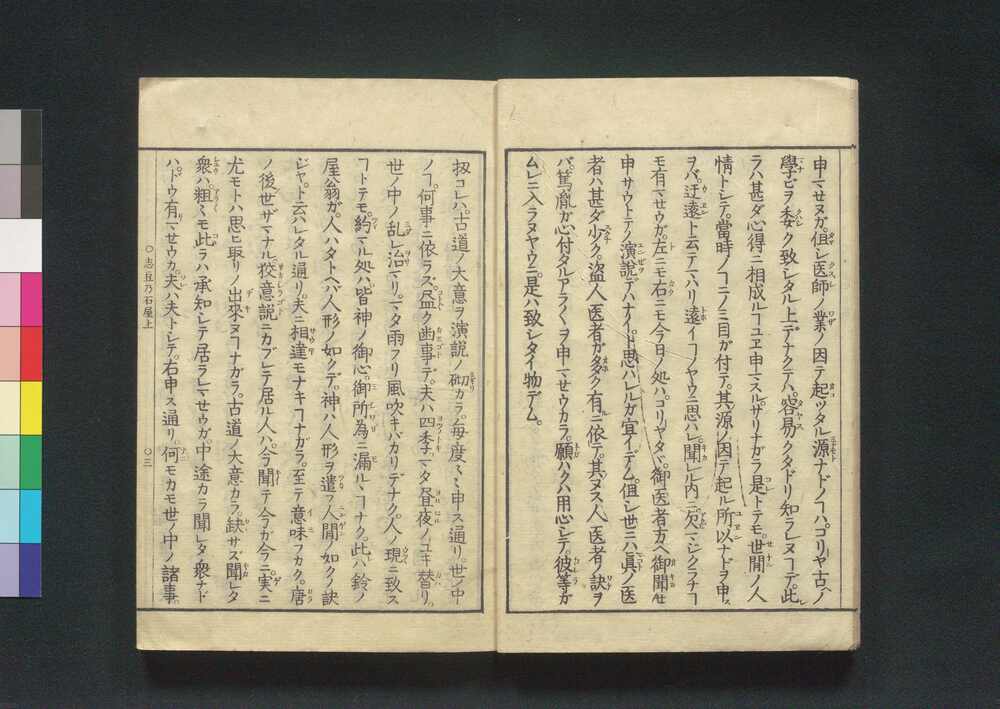 申マセヌガ。但シ医師ノ業ノ因テ起ツタル源ナドノコハ。ゴリヤ古ヘノ
學ビヲ委ク致シタル上デナクテハ。容易クタドリ知ラレヌコデ。此
ラハ甚ダ心得ニ相成ルコユヱ申マスル。サリナガラ是トテモ。世間ノ人
情トシテ。當時ノコニノミ目ガ付テ。其源ノ因テ起ル所以ナドヲ申ス
ヲバ。迂遠ト云テハリ遠イコノヤウニ思ハレ。聞レル内ニ欠マシクラナコ
モ有マセウガ。左ニモ右ニモ今日ノ処ハ。ゴリヤタヾ。御医者方ヘ御聞せ
申サウトテノ演説デハナイ。ト思ハレルガ宜イデム。但シ世ニハ眞ノ医
者ハ甚ダ少ク。盗人医者ガ多ク有ルニ依テ。其ヌス人医者ノ訣ヲ
バ。篤胤ガ心付タルアラ〳〵ヲ申マセウカラ。願ハクハ用心シテ。彼等ガ
ムレニ入ラヌヤウニ。是ハ致シタイ物デム。
扨コレハ。古道ノ大意ヲ演説ノ砌カラ。毎度〻〻申ス通リ。世ノ中
ノコ。何事ニ依ラズ。尽ク幽事デ。夫ハ四季マタ昼夜ノユキ替リ。
世ノ中ノ乱レ治マリ。マタ雨フリ風吹キバカリデナク。人ノ現ニ致ス
コトテモ。約マル処ハ。皆神ノ御心。御所為ニ漏ルヽコナク。此ハ鈴ノ
屋翁ガ。人ハタトヘバ人形ノ如クデ。神ハ人形ヲ遣フ人間ノ如クノ訣
ジヤ。ト云ハレタル通リ。夫ニ相違モナキコナガラ。至テ意味フカク。唐
ノ後世ザマナル。狡意説ニカブレテ居ル人ハ。今聞テ今ガ今ニ。実ニ
尤モトハ思ヒ取リノ出來ヌコナガラ。古道ノ大意カラ。缺サズ聞レタ
衆ハ。粗〻モ此ラハ承知シテ居ラレマセウガ。中途カラ聞レタ衆ナド
ハ。ドウ有マセウカ。夫ハ夫トシテ。右申ス通リ。何モカモ世ノ中ノ諸事。
○志且乃石屋上
○三